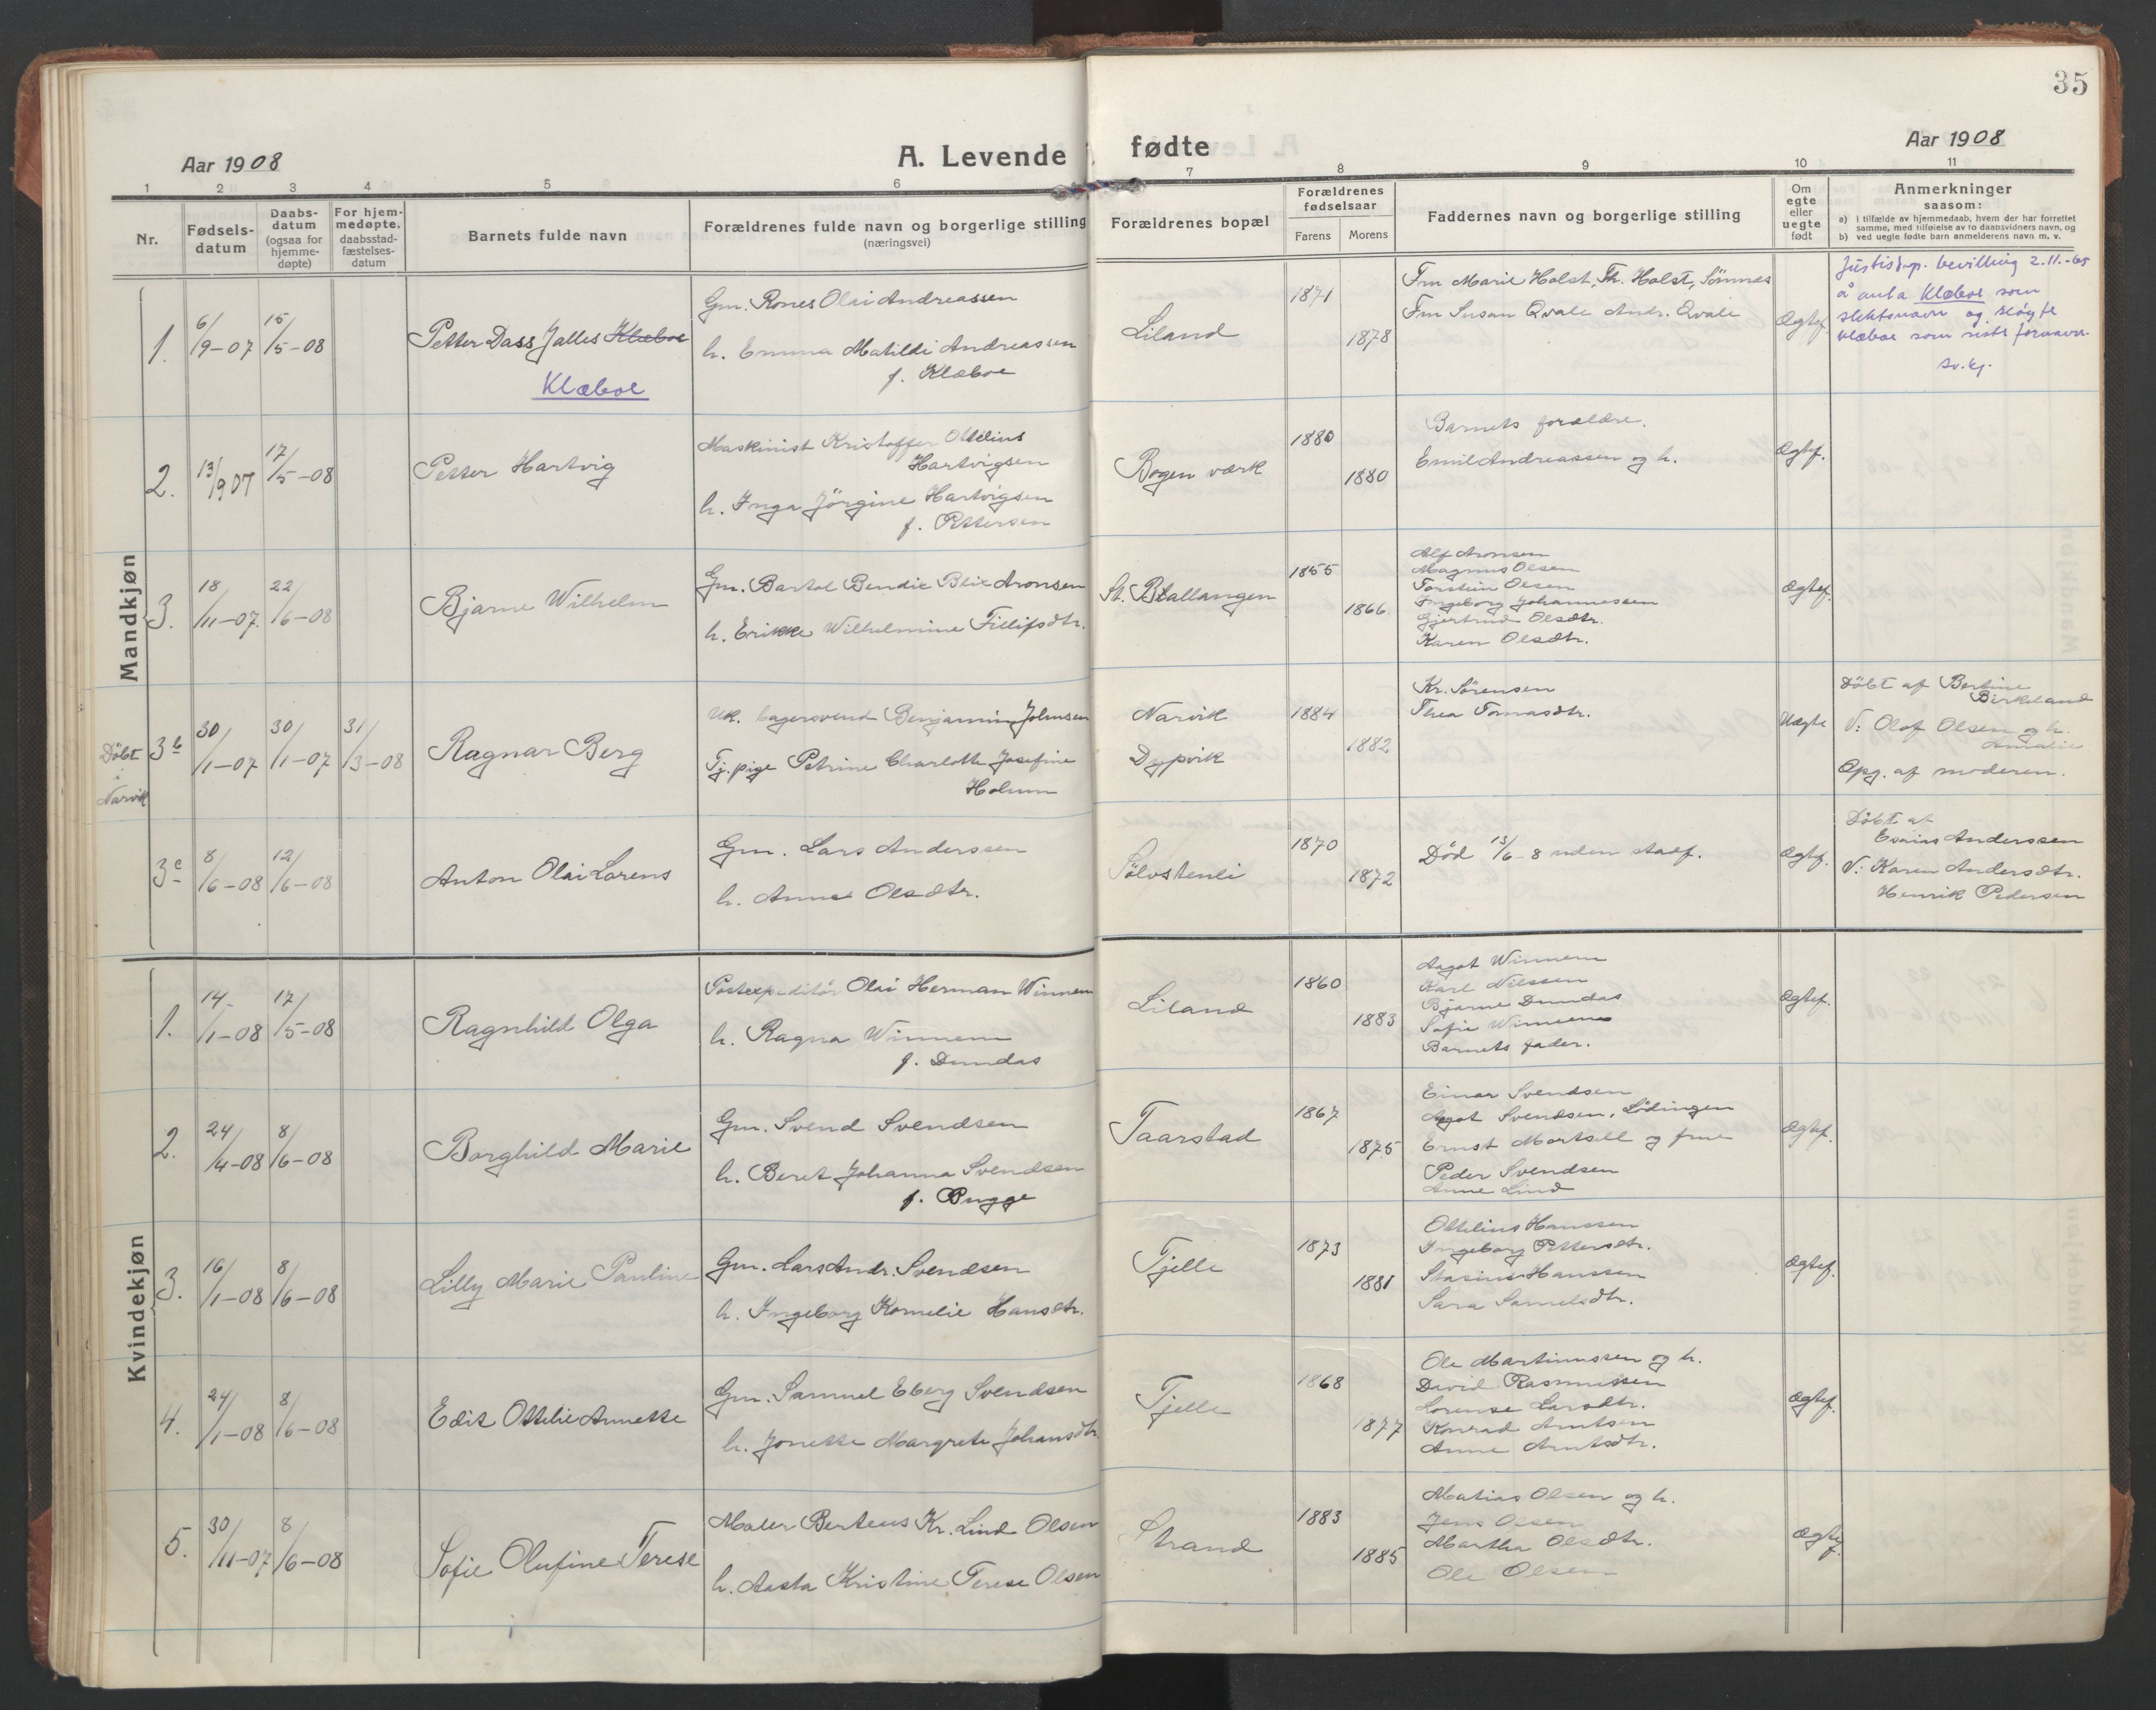 35
Aar 1908
A. Levende fødte
Aar 1908
1 2 3 4 5 6 7 8 9 10 11
Nr.
Fødsels-
datum
Daabs-
datum
(ogsaa for
hjemme-
døpte)
For hjem-
medøpte.
daabsstad-
fæstelses-
datum
Barnets fulde navn
Forældrenes fulde navn og borgerlige stilling
(næringsvei)
Forældrenes bopæl
Forældrenes
fødselsaar
Farens Morens
Faddernes navn og borgerlige stilling
Om
egte
eller
uegte
født
Anmerkninger
saasom:
a) i tilfælde av hjemmedaab, hvem der har forrettet
samme, med tilføielse av to daabsvidners navn, og
b) ved uegte fødte barn anmelderens navn m. v.
Mandkjøn
1. 6/9-07 15/5-08
Petter Dass Jalles Klæboe
Klæboe
Gm. Rones Olai Andreassen
h. Emma Matilde Andreassen
f. Klæboe
Liland
1871
1878
Fru Marie Holst, Th. Holst, Sömnes
Fru Susan Qvale Andr. Qvale
Ægtef.
Justisdep. bevilling 2.11.-65
å anta Klæboe som
slektsnavn og sløyfe
Klæboe som siste fornavn.
sv.kj.
2. 13/9 07 17/5-08
Petter Hartvig
Maskinist Kristoffer Ottelius
Hartvigsen
h. Inga Jörgine Hartvigsen
f. Pettersen
Bogen værk
1880
1880
Barnets forældre.
Emil Andreassen og h.
Ægtef.
3. 18/11-07. 22/6-08
Bjarne Wilhelm
Gm. Bartol Bendix Blix Aronsen
h. Erikke Wilhelmine Fillipsdtr.
St. Ballangen
1855
1866.
Alf Aronsen
Magnus Olsen
Torstein Olsen
Ingeborg Johannessen
Gjertrud Olsdtr.
Karen Olsdtr.
Ægtef.
Döbt
i
Narvik
3b 30/1-07 30/1-07 31/3-08
Ragnar Berg
Uk. bagersvend Benjamin Johnsen
Tj. pige Petrine Charlotte Josefine
Holmm
Narvik
Dypvik
1884
1882
Kr. Sörensen
Thea Tomasdtr.
Uægte
Döbt af Bertine
Birkeland
V: Olaf Olsen og h.
Amalie
Opg. af moderen.
3c 8/6-08 12/6-08
Anton Olai Lorens
Gm. Lars Anderssen
h. Anne Olsdtr.
Sölvstenli
1870
1872
Död 13/6-8 uden stadf.
Ægtef.
Döbt af
Esaias Anderssen
V: Karen Andersdtr.
Henrik Pedersen
Kvindekjøn
1. 14/1-08 17/5-08
Ragnhild Olga
Postexpeditör Olai Herman Winnem
h. Ragna Winnem
f. Dundas
Liland
1860
1883
Aagot Winnem
Karl Nilssen
Bjarne Dundas
Sofie Winnem
Barnets fader.
Ægtef.
2. 24/4-08 8/6-08
Borghild Marie
Gm. Svend Svendsen
h. Beret Johanna Svendsen
f. Bugge
Taarstad
1867
1875
Einar Svendsen
Agot Svendsen, Lödingen
Ernst Mortsell og frue
Peder Svendsen
Anne Lind
Ægtef.
3. 16/1-08 8/6-08
Lilly Marie Pauline
Gm. Lars Andr. Svendsen
h. Ingeborg Kornelie Hansdtr.
Tjelle
1873
1881
Ottelius Hanssen
Ingeborg Pettersdtr.
Stasius Hanssen
Sara Samelsdtr.
Ægtef.
4. 24/1-08 8/6-08
Edit Ottelie Annette
Gm. Samuel Eberg Svendsen
h. Jonette Margrete Johansdtr.
Tjelle
1868
1877
Ole Martinussen og h.
David Rasmussen
Lorense Larsdtr.
Konrad Arntsen
Anne Arntsdtr.
Ægtef.
5. 30/11-07 8/6-08
Sofie Olufine Terese
Maler Berteus Kr. Lind Olsen
h. Aasta Kristine Terese Olsen
Strand
1883
1885
Matias Olsen og h.
Jens Olsen
Martha Olsdtr.
Ole Olsen
Ægtef.